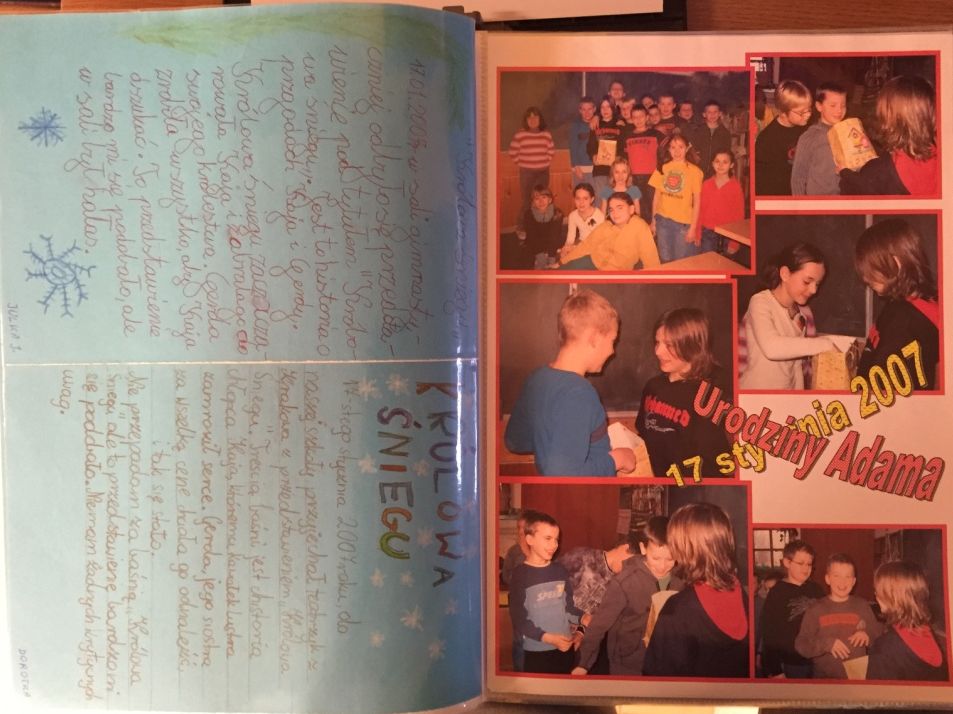 "Królowa Śniegu"
17.01.2007r w sali gimnasty-
cznej odbyło się przedsta-
wienie pod tytułem "Królo-
wa śniegu". Jest to historia o
przygodach Kaja i Gerdy.
Królowa śniegu zacza-
rowała Kaja i zabrała go do
swojego królestwa. Gerda
zrobiła wszystko, aby Kaja
odszukać. To przedstawienie
bardzo mi się podobało, ale
w sali był hałas.
JULKA J.
KRÓLOWA
ŚNIEGU
17-stego stycznia 2007 roku do
naszej szkoły przyjechał teatrzyk z
Krakowa z przedstawieniem "Królowa
Śniegu". Treścią baśni jest historia
chłopca Kaja, któremu kawałek lustra
zamroził serce. Gerda jego siostra
za wszelką cenę chciała go odnaleźć.
i tak się stało.
Nie przepadam za baśnią "Królowa
Śniegu" ale to przedstawienie bardzo mi
się podobało. Nie mam żadnych krytycznych
uwag.
DOROTKA
Urodziny Adama
17 stycznia 2007